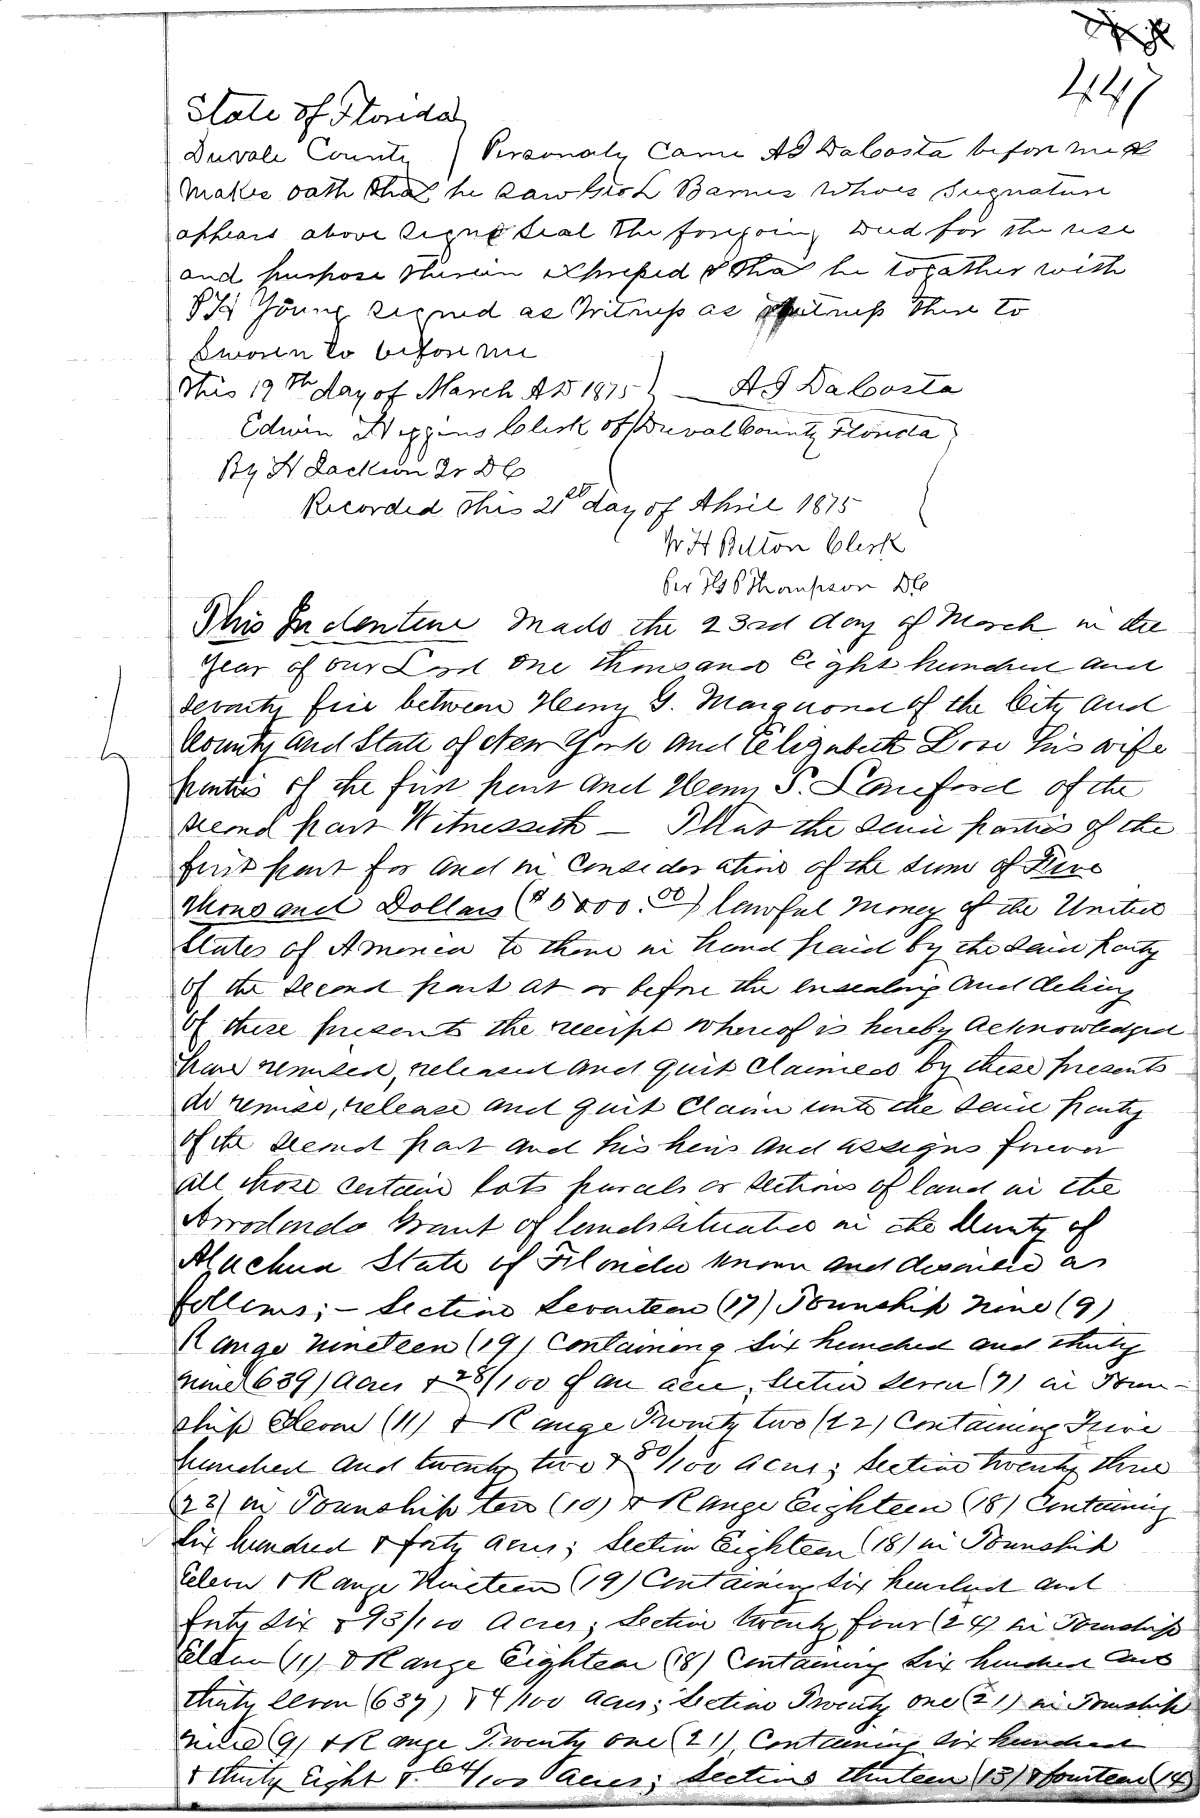 447
State of Florida
Duvale County } Personaly Came A I DaCosta before me &
makes oath that he saw Geo L Barnes whoes Signature
appears above Signe & Seal the foregoing Deed for the use
and purpose therein expressed & that he togather with
P H Young signed as Witness as Witness there to
Sworen to before me
this 19th day of March AD 1875 } A I DaCosta
Edwin Higgins Clerk of Duval County Florida
By H Jackson Jr D C
Recorded this 21st day of April 1875
W H Belton Clerk
Per F S P Thompson DC
This Indenture Made the 23rd day of March in the
Year of our Lord One thousand Eight hundred and
seventy five between Henry G. Marquand of the City and
County and State of New York and Elizabeth Love his wife
parties of the first part and Henry S. Sanford of the
second part Witnesseth — That the said parties of the
first part for and in Consideration of the sum of Five
thousand Dollars ($5000.00) lawful money of the United
States of America to them in hand paid by the said party
of the second part at or before the ensealing and delivy
of these presents the receipt whereof is hereby acknowledged
have remised, released and quit Claimed by these presents
do remise, release and quit Claim unto the said party
of the second part and his heirs and assigns forever
all those certain lots parcels or sections of land in the
Arrodondo Grant of lands situated in the County of
Alachua State of Florida known and described as
follows; — Section Seventeen (17) Township nine (9)
Range nineteen (19) Containing six hundred and thirty
nine (639) acres & 28/100 of an acre; Section seven (7) in Town-
ship Eleven (11) & Range Twenty two (22) Containing Five
hundred and twenty two & 80/100 acres; Section twenty three
(23) in Township ten (10) & Range Eighteen (18) Containing
six hundred & forty acres; Section Eighteen (18) in Township
Eleven & Range Nineteen (19) Containing six hundred and
forty six & 93/100 acres; Section twenty four (24) in Township
Eleven (11) & Range Eighteen (18) Containing six hundred and
thirty seven (637) & 4/100 acres; Section Twenty one (21) in Township
nine (9) & Range Twenty one (21), Containing six hundred
& thirty Eight & 64/100 acres; Sections thirteen (13) & fourteen (14)